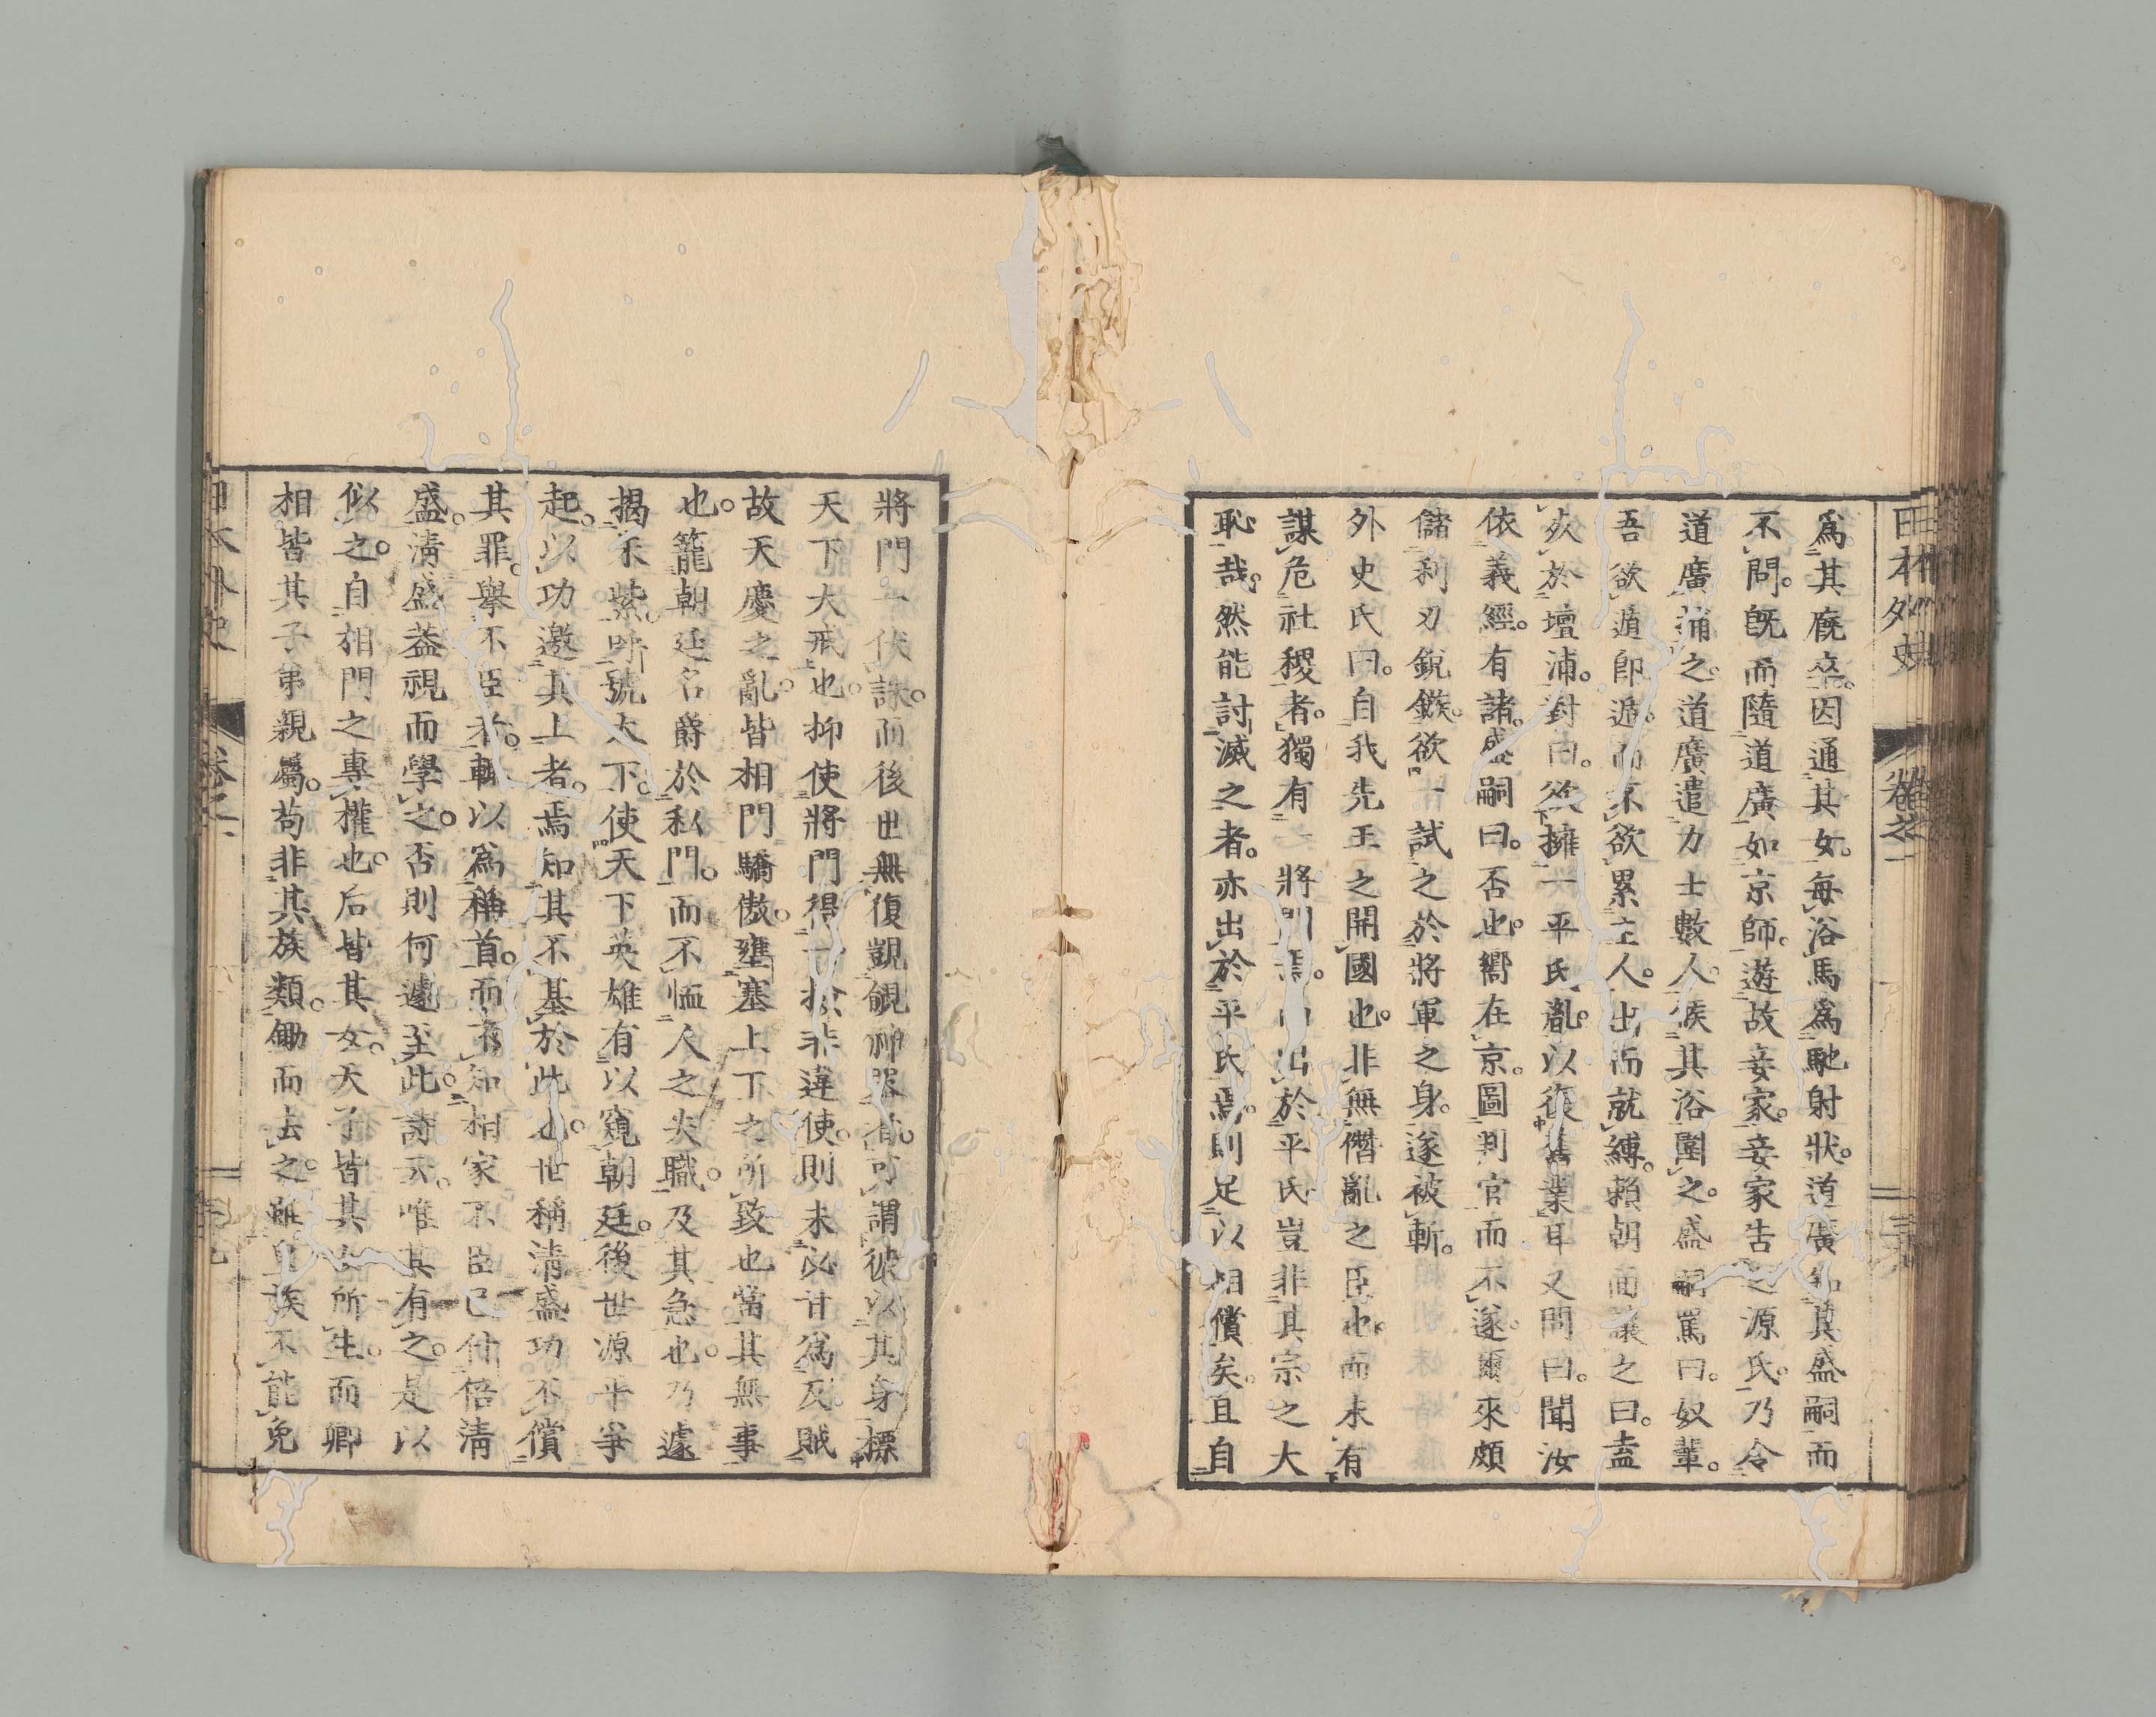 日本外史 卷之一
爲其廐卒。因通其女。每浴馬爲馳射狀。道廣知其盛嗣而
不問。既而隨道廣如京師。遊故妾家。妾家告之源氏。乃令
道廣捕之。道廣遣力士數人。候其浴圍之。盛嗣罵曰。奴輩。
吾欲遁即遁。而不欲累主人。出而就縛。賴朝面讓之曰。盍
死於壇浦。對曰。欲擁一平氏胤。以復舊業耳。又問曰。聞汝
依義經。有諸。盛嗣曰。否也。嚮在京。圖判官而不遂。爾來頗
儲利刃銳鏃。欲一試之於將軍之身。遂被斬。
外史氏曰。自我先王之開國也。非無僭亂之臣也。而未有
謀危社稷者。獨有一將門焉。而出於平氏。豈非其宗之大
恥哉。然能討滅之者。亦出於平氏焉。則足以相償矣。且自
將門一伏誅。而後世無復覬覦神器者。可謂彼以其身標
天下大戒也。抑使將門得一檢非違使。則未必甘爲反賊
故天慶之亂。皆相門驕傲。壅塞上下之所致也。當其無事
也。籠朝廷名爵於私門。而不恤人之失職。及其急也。乃遽
揭朱紫。呼號天下。使天下英雄有以窺朝廷。後世源平爭
起。以功邀其上者。焉知其不基於此也。世稱淸盛功不償
其罪。擧不臣者。輙以爲稱首。而不知相家不臣已什倍淸
盛。淸盛葢視而學之。否則何遽至此。詩云。唯其有之。是以
似之。自相門之專權也。后皆其女。天子皆其女所生。而卿
相皆其子弟親屬。苟非其族類。鋤而去之。雖皇族不能免
日本外史 卷之一